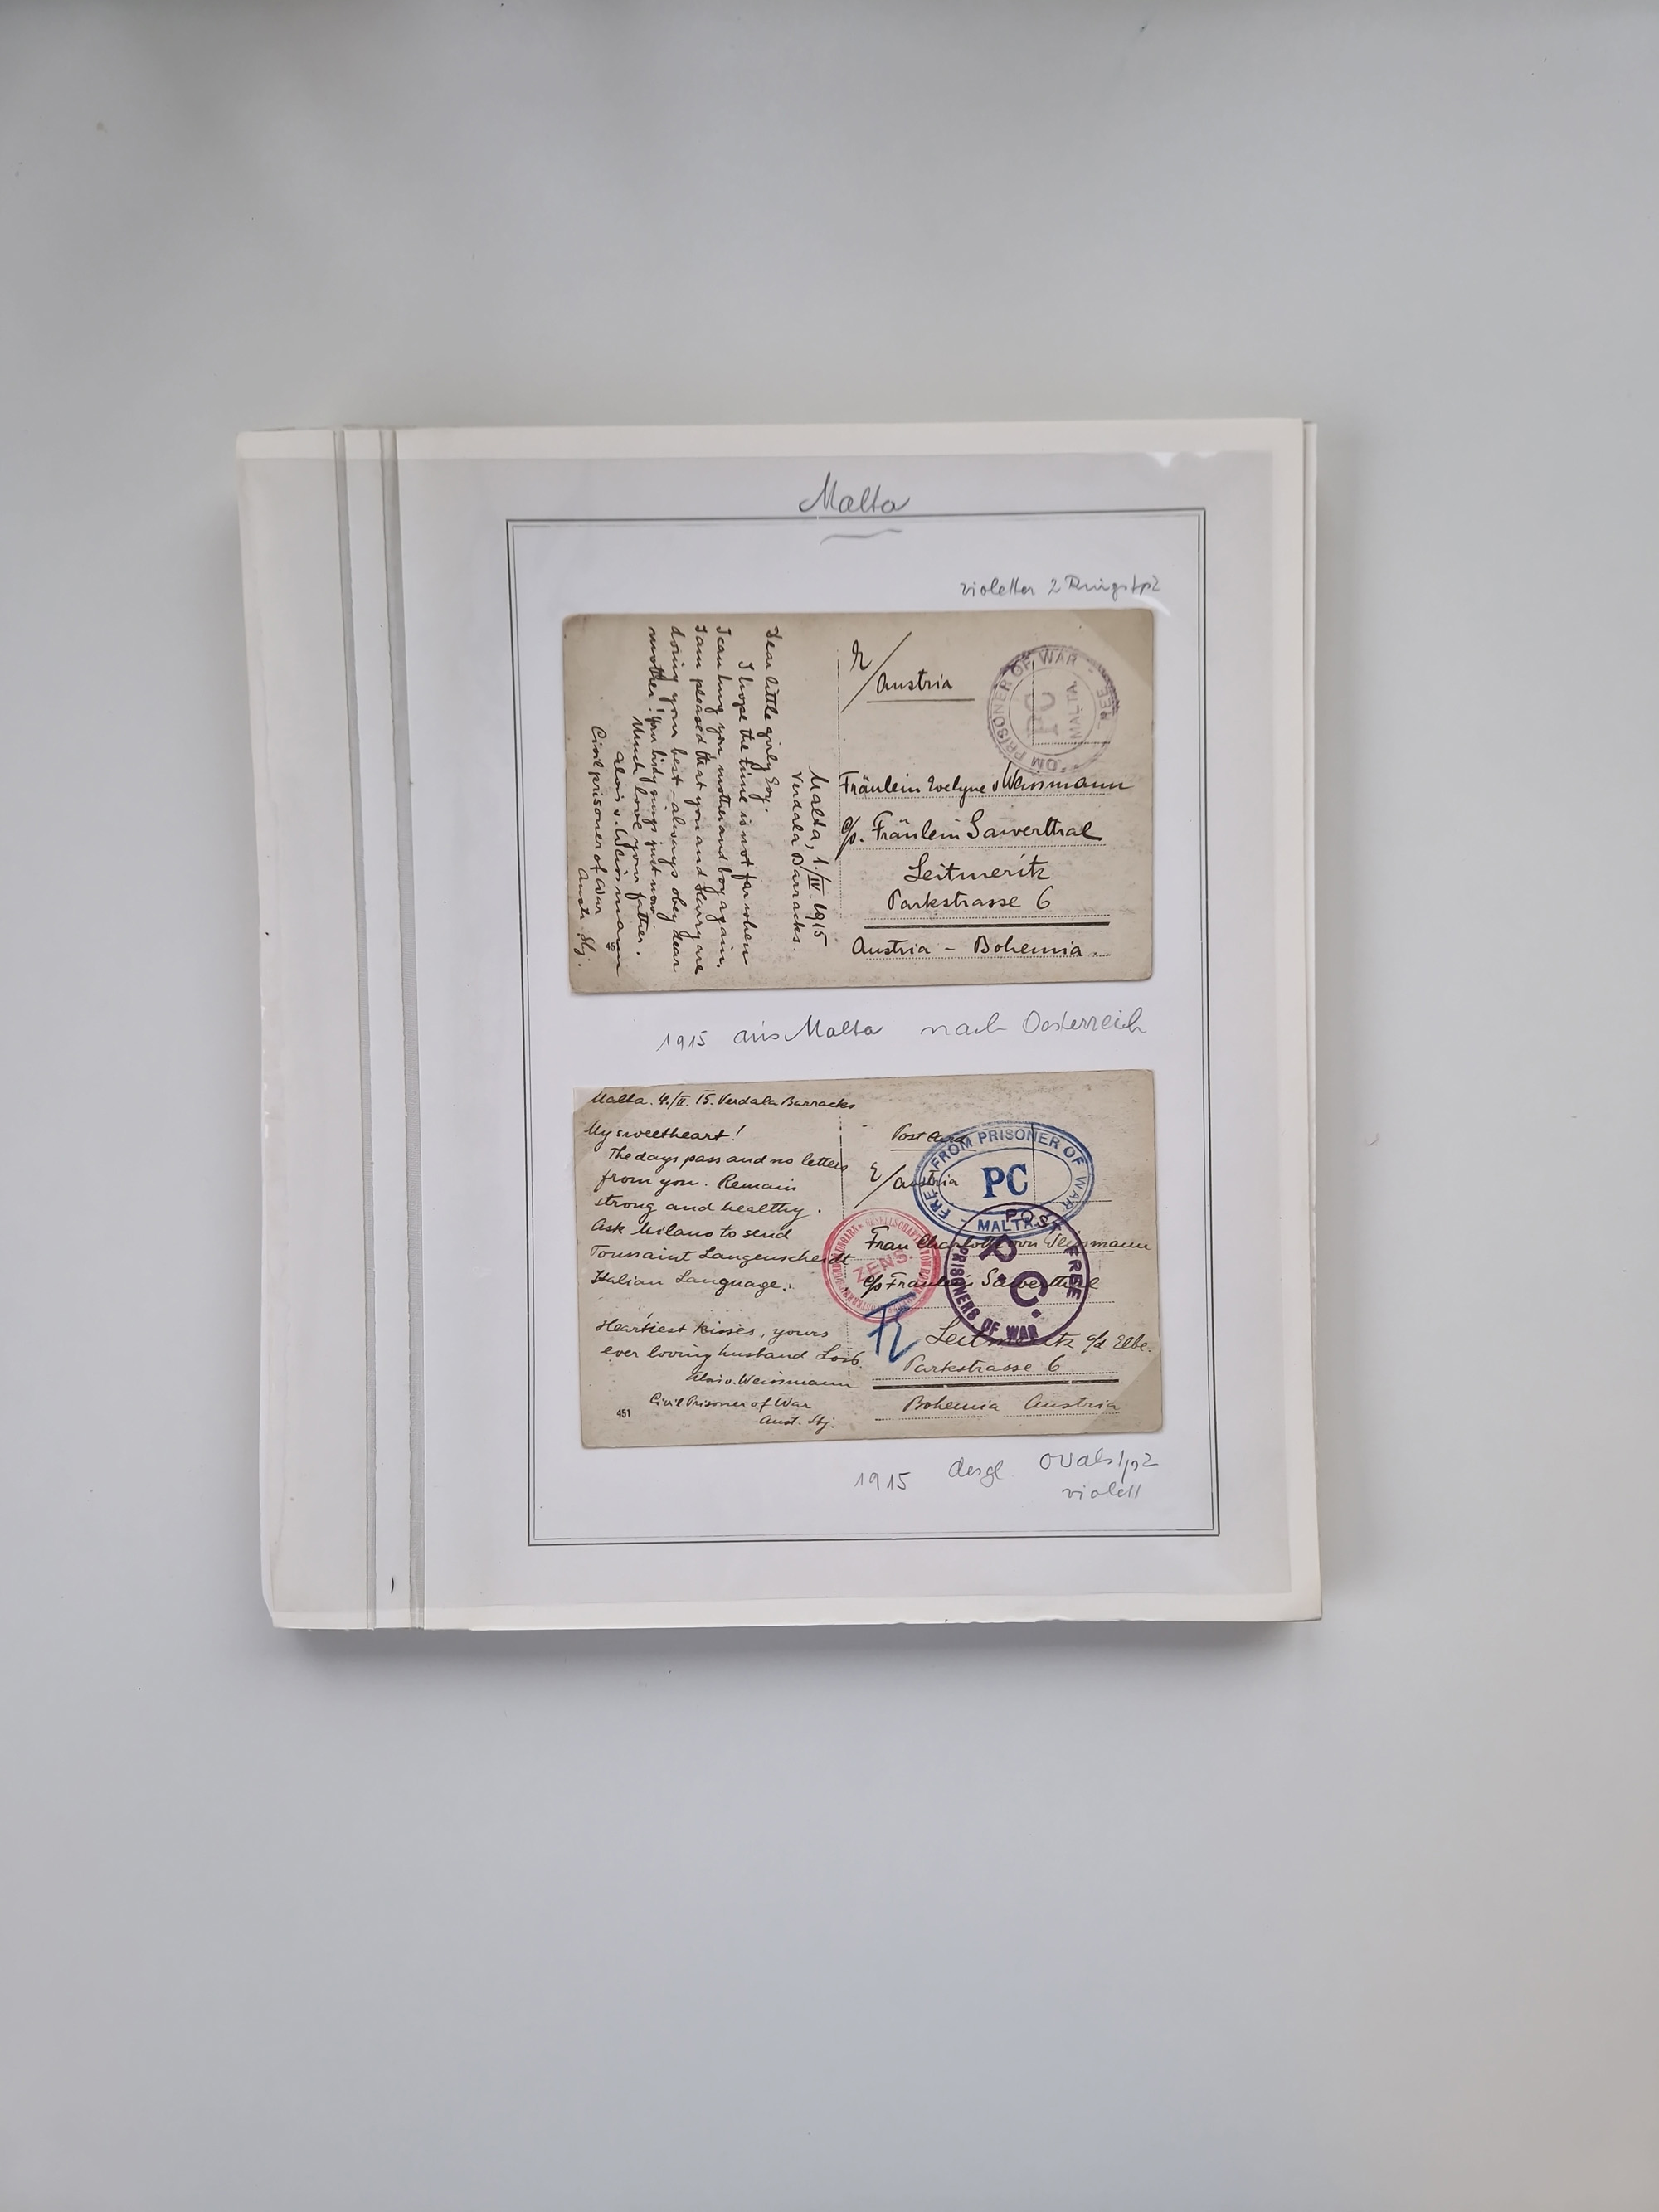 Malta
violetter 2 Ringstpl
FREE FROM PRISONER OF WAR
PC
MALTA
Austria
Fräulein Evelyne v Weissmann
c/o. Fräulein Sawerthal
Leitmeritz
Parkstrasse 6
Austria - Bohemia.
Malta, 1./IV. 1915
Verdala Barracks.
Dear little girly Evy.
I hope the time is not far when
I can hug you, mother and boy again.
I am pleased that you and Harry are
doing your best - always obey dear
mother! just now.
Much love your father.
Alois v. Weissmann
Civil prisoner of War
Aust. Sbj.
45
1915 aus Malta nach Oesterreich
Malta. 4./II. 15. Verdala Barracks
My sweetheart!
The days pass and no letters
from you. Remain
strong and healthy.
Ask Milano to send
Toussaint Langenscheidt
Italian Language.
Heartiest kisses, yours
ever loving husband
Alois v. Weissmann
Civil Prisoner of War
Aust. Sbj.
451
Post Card
Austria
FREE FROM PRISONER OF WAR
PC
MALTA
POST FREE
P.C.
PRISONERS OF WAR
ZENS.
Frau Charlotte von Weissmann
c/o Fräulein Sawerthal
Leitmeritz a/d Elbe.
Parkstrasse 6
Bohemia Austria
1915 desgl Ovalstpl
violett